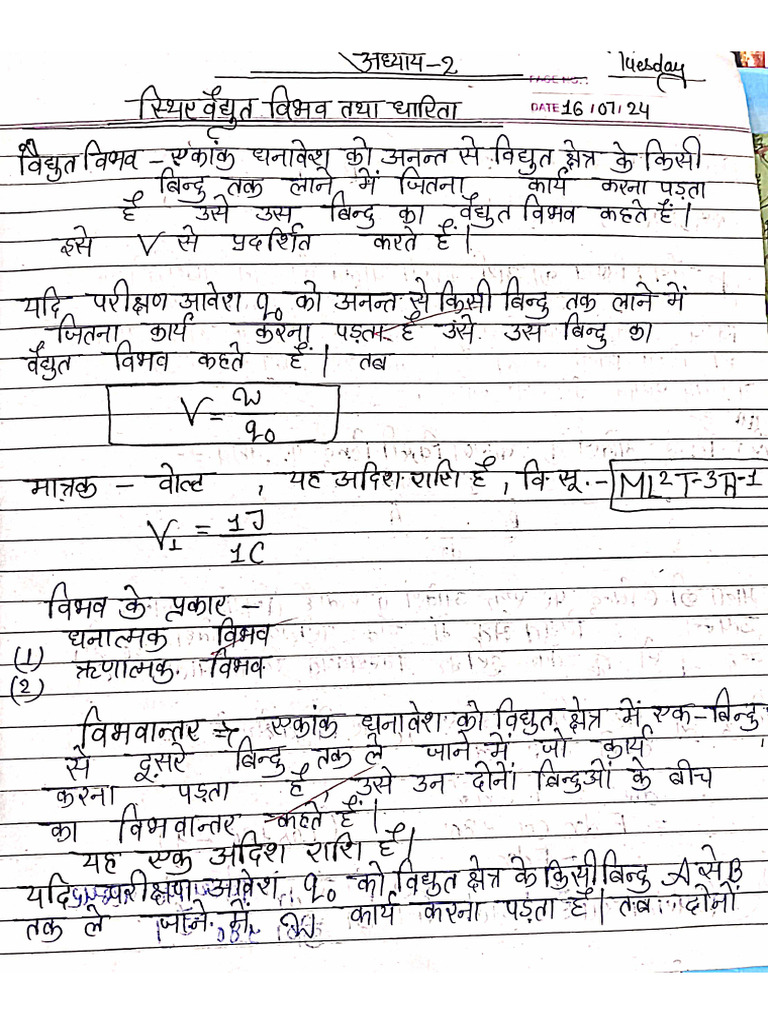 अध्याय-2
Tuesday
PAGE NO.:
स्थिर वैद्युत विभव तथा धारिता
DATE: 16/07/24
वैद्युत विभव - एकांक धनावेश को अनन्त से विद्युत क्षेत्र के किसी
बिन्दु तक लाने में जितना कार्य करना पड़ता
है उसे उस बिन्दु का वैद्युत विभव कहते हैं।
इसे V से प्रदर्शित करते हैं।
यदि परीक्षण आवेश q₀ को अनन्त से किसी बिन्दु तक लाने में
जितना कार्य करना पड़ता है उसे उस बिन्दु का
वैद्युत विभव कहते हैं। तब
V = W/q₀
मात्रक - वोल्ट , यह अदिश राशि है , वि. सू. - ML²T-3A-1
V₁ = 1J/1C
विभव के प्रकार -
(1) धनात्मक विभव
(2) ऋणात्मक विभव
विभवान्तर ⇒ एकांक धनावेश को विद्युत क्षेत्र में एक-बिन्दु
से दूसरे बिन्दु तक ले जाने में जो कार्य
करना पड़ता है, उसे उन दोनों बिन्दुओं के बीच
का विभवान्तर कहते हैं।
यह एक अदिश राशि है।
यदि परीक्षण आवेश q₀ को विद्युत क्षेत्र के किसी बिन्दु A से B
तक ले जाने में W कार्य करना पड़ता है। तब दोनों